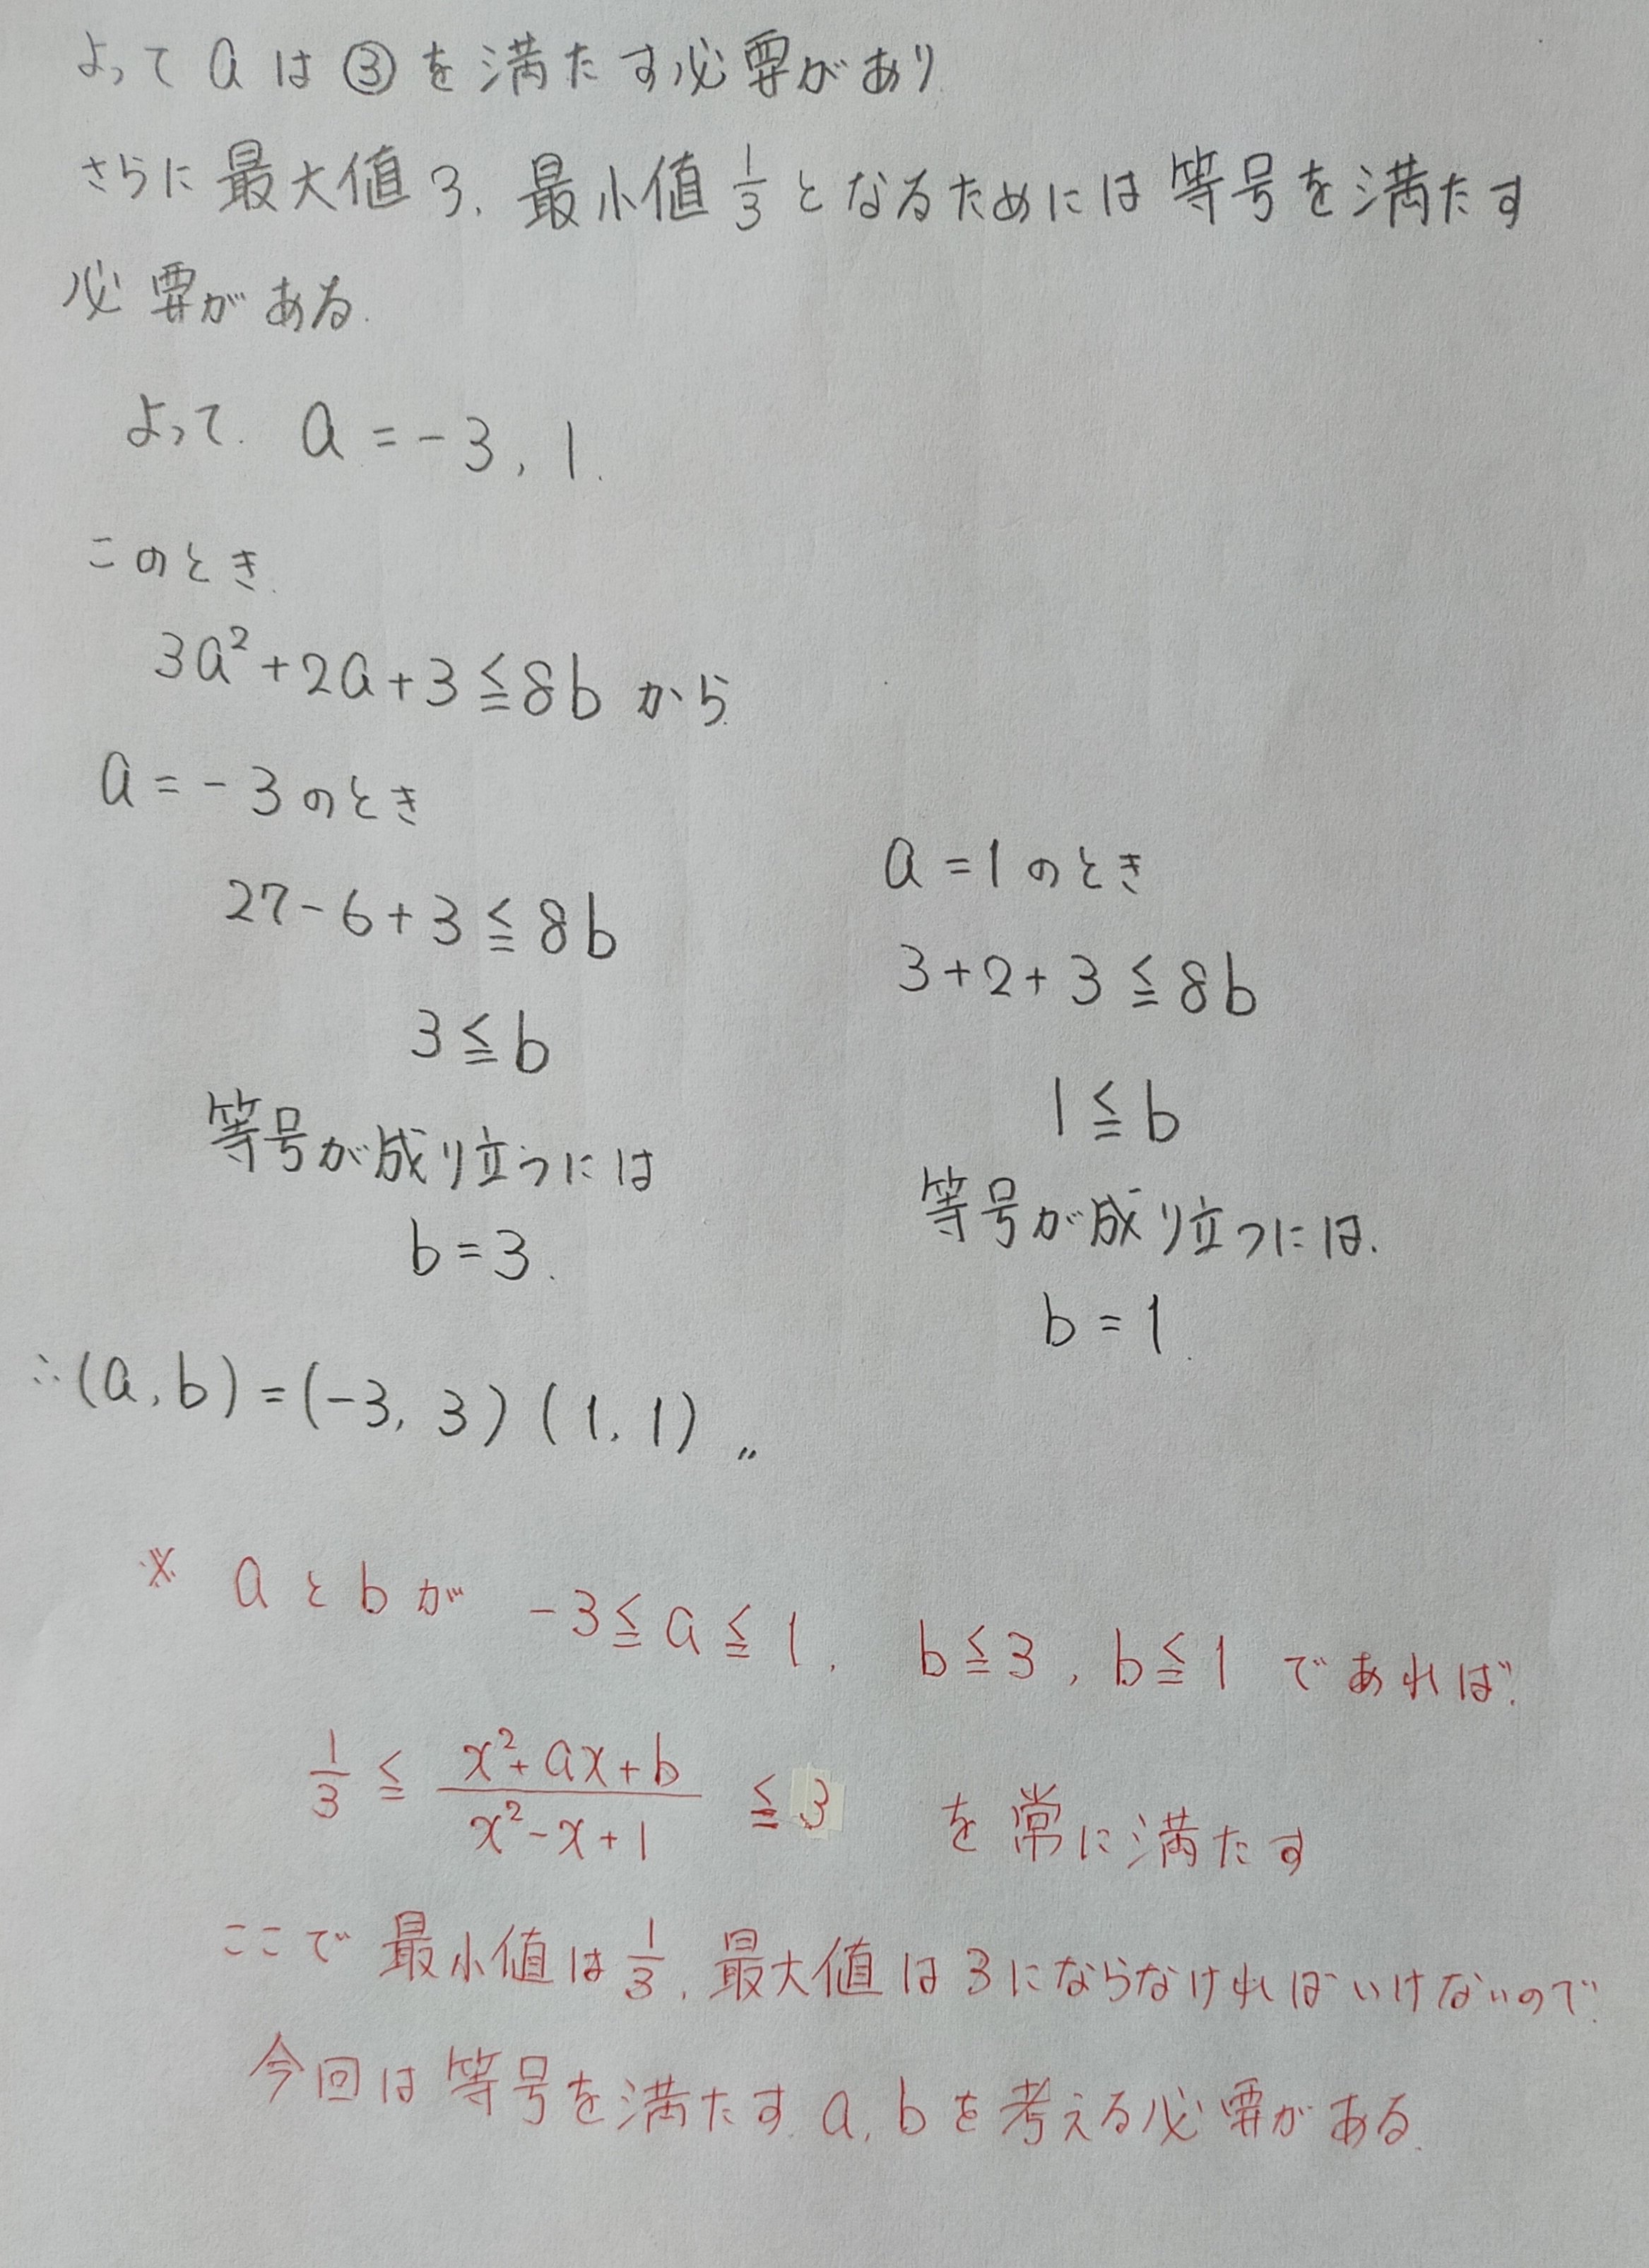 よって aは③を満たす必要があり
さらに最大値3, 最小値1/3となるためには等号を満たす
必要がある.
よって. a = -3, 1.
このとき.
3a²+2a+3≦8b から
a = -3のとき
27-6+3≦8b
3≦b
等号が成り立つには
b=3.
a=1のとき
3+2+3≦8b
1≦b
等号が成り立つには.
b=1.
∴(a,b)=(-3,3)(1,1)〃
※ aとbが -3≦a≦1, b≦3, b≦1 であれば.
1/3 ≦ (x²+ax+b)/(x²-x+1) ≦3 を常に満たす
ここで最小値は1/3, 最大値は3にならなければいけないので
今回は等号を満たす a, bを考える必要がある.